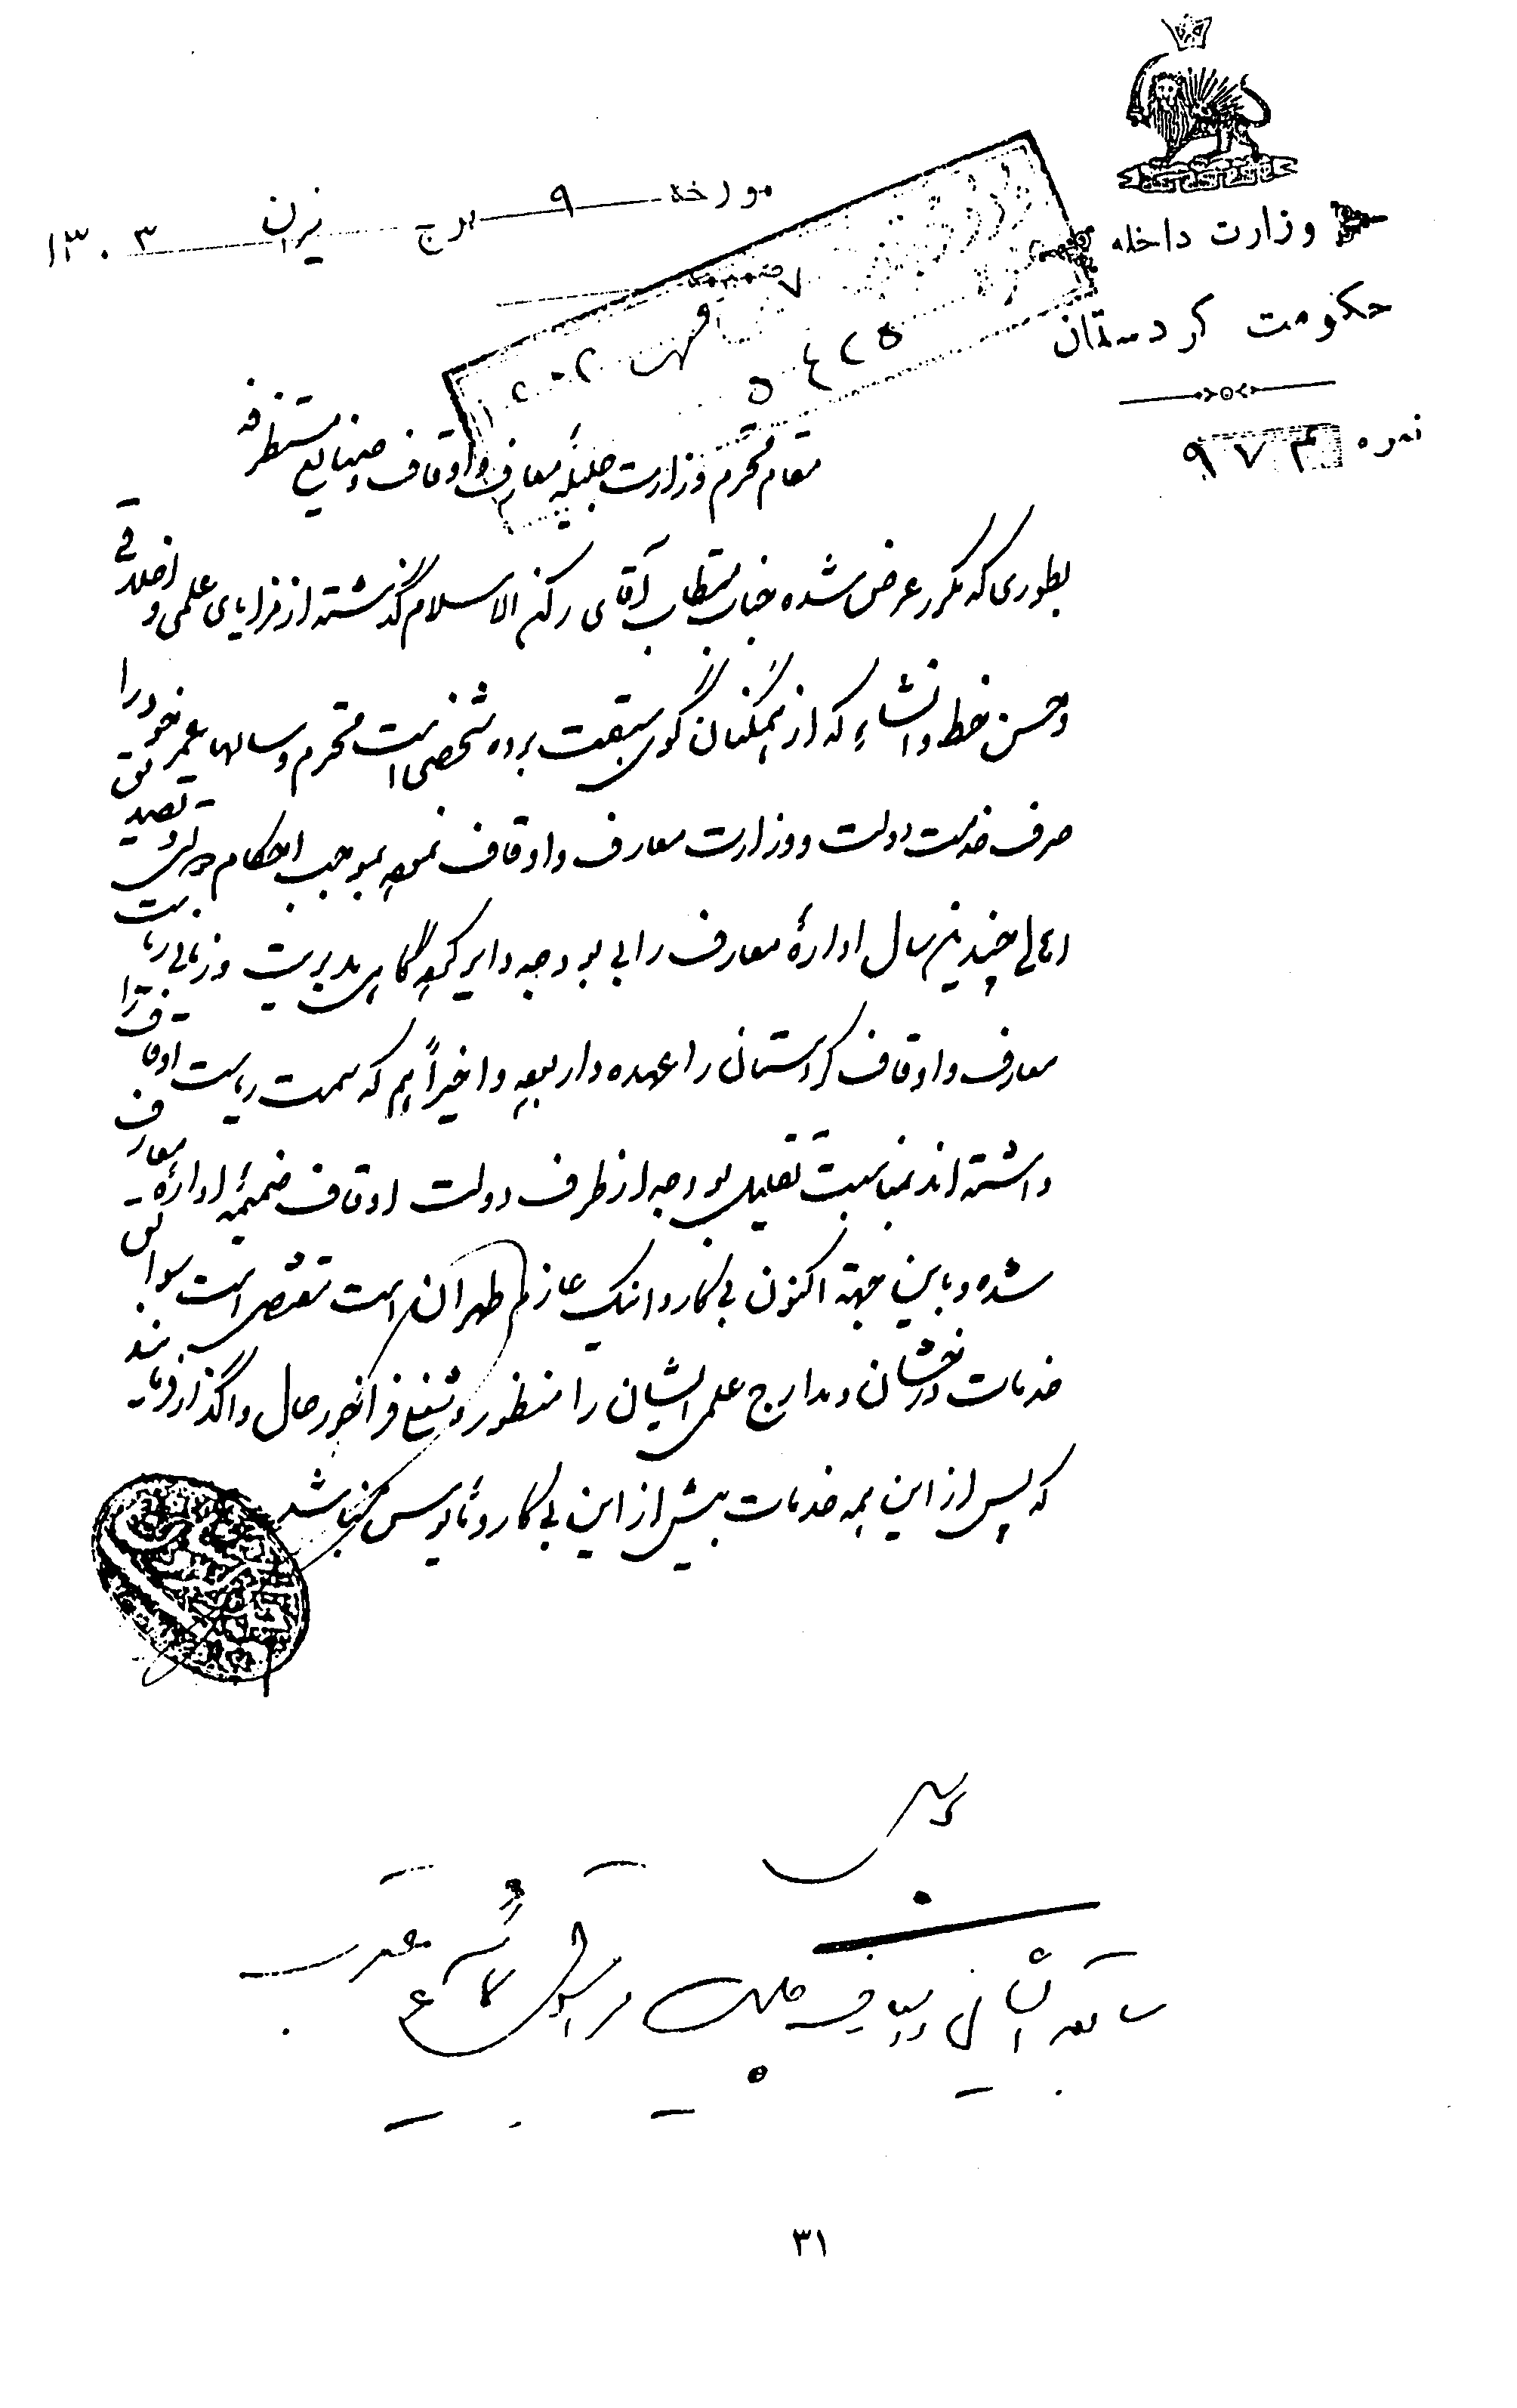 وزارت داخله
حکومت کردستان
نمره ۹۷۳
مورخه ۹ برج میزان ۱۳۰۳
ضمیمه
۵۴۲۵
مقام محترم وزارت جلیلهٔ معارف و اوقاف و صنایع مستظرفه
بطوری که مکرر عرض شده جناب مستطاب آقای رکن الاسلام گذشته از مزایای علمی و اخلاقی
و حسن خط و انشاء که از همگنان گوی سبقت برده شخصی است محترم و سالها عمر خود را
صرف خدمت دولت و وزارت معارف و اوقاف نموده بموجب احکام دولتی و تصدیق
اهالی چندین سال ادارهٔ معارف را بی بودجه دایر کرده گاهی مدیریت و زمانی ریاست
معارف و اوقاف کردستان را عهده دار بوده و اخیراً هم که سمت ریاست اوقاف را
داشته اند بمناسبت تقلیل بودجه از طرف دولت اوقاف ضمیمهٔ ادارهٔ معارف
شده و باین جهة اکنون بی کار و اینک عازم طهران است مقتضی است سوابق
خدمات درخشان و مدارج علمی ایشان را منظور و شغلی فراخور حال واگذار فرمایند
که پس از این همه خدمات بیش از این بی کار و مأیوس نباشد
۳۱